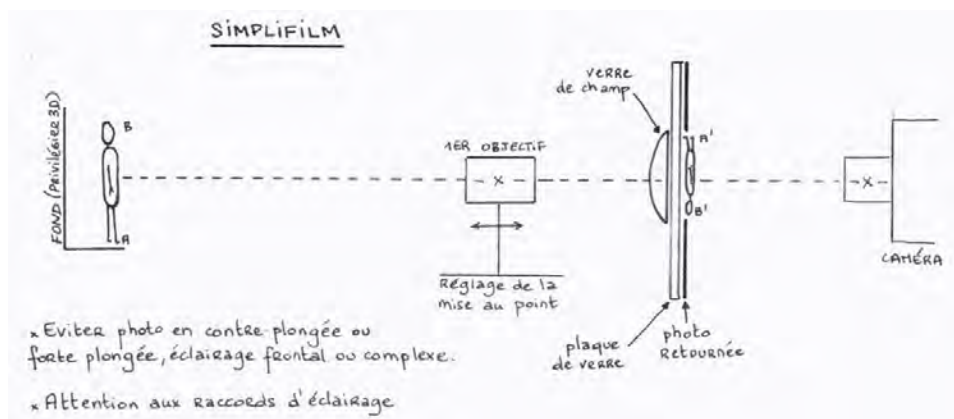 SIMPLIFILM
FOND (PRIVILÉGIER 3D)
B
A
1ER OBJECTIF
x
Réglage de la
mise au point
VERRE
de champ
A'
B'
plaque
de verre
photo
RETOURNÉE
x
CAMÉRA
x Eviter photo en contre-plongée ou
forte plongée, éclairage frontal ou complexe.
x Attention aux raccords d'éclairage